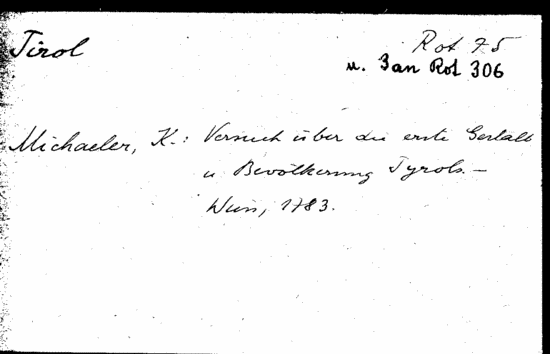 Tirol
Rot 75
u. 3 an Rot 306
Michaeler, K.: Versuch über die erste Gestalt
u. Bevölkerung Tyrols. -
Wien, 1783.